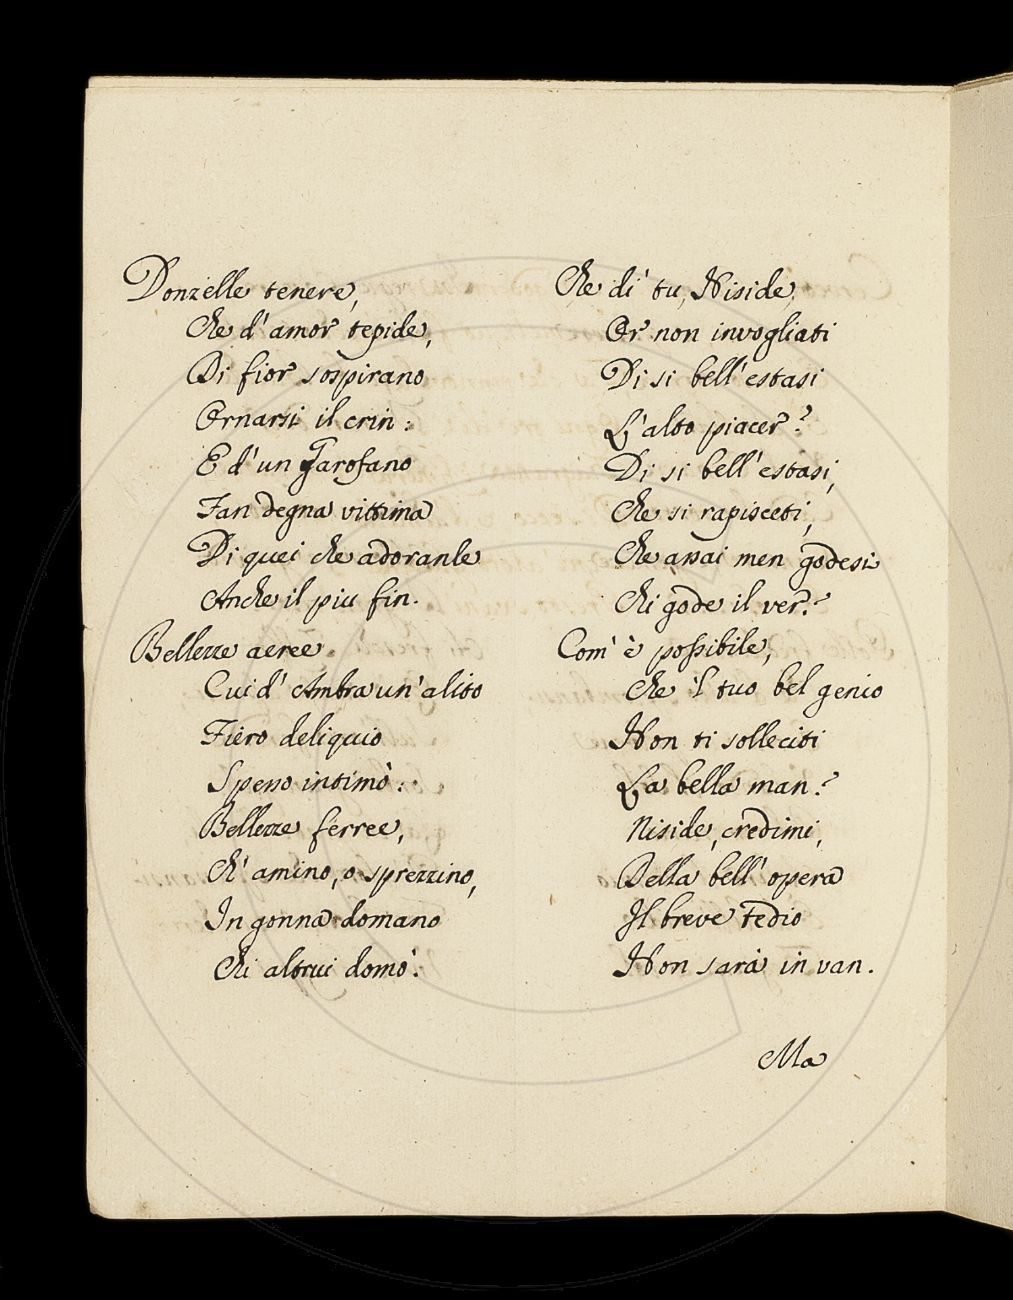 Donzelle tenere,
Che d'amor tepide,
Di fior sospirano
Ornarsi il crin:
E d'un Garofano
Fan degna vittima
Di quei che adoranle
Anche il piu fin.
Bellezze aeree
Cui d'Ambra un'alito
Fiero deliquio
Spesso intimò:
Bellezze ferree,
Ch'amino, o sprezzino,
In gonna domano
Chi altrui domò.
Che di' tu, Niside,
Or non invogliati
Di si bell'estasi
L'alto piacer?
Di si bell'estasi,
Che si rapisceti,
Che assai men godesi
Chi gode il ver?
Com'è possibile,
Che 'l tuo bel genio
Non ti solleciti
La bella man?
Niside, credimi,
Della bell'opera
Il breve tedio
Non sarà in van.
Ma